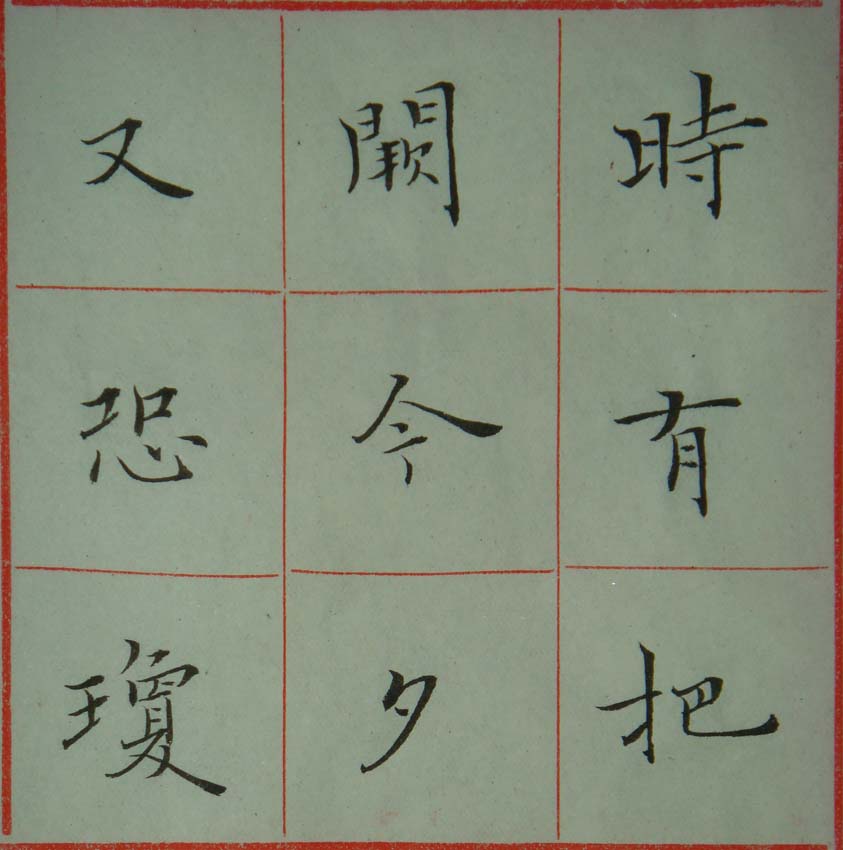 時有把
闕今夕
又恐瓊